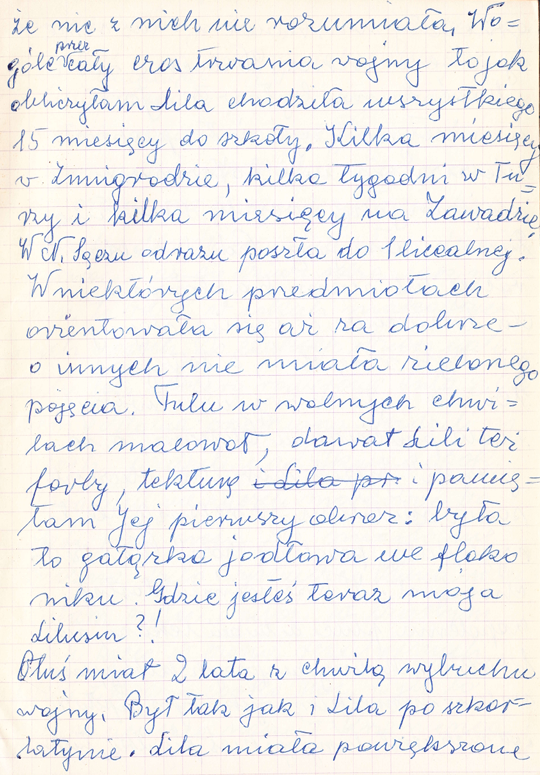 że nic z nich nie rozumiała, Wo=
góle przez cały czas trwania wojny to jak
obliczyłam Lila chodziła wszystkiego
15 miesięcy do szkoły. Kilka miesięcy
w Żmigrodzie, kilka tygodni w Tu=
rzy i kilka miesięcy na Zawadzie.
W N. Sączu odrazu poszła do I licealnej.
W niektórych przedmiotach
orientowała się aż za dobrze –
o innych nie miała zielonego
pojęcia. Tulu w wolnych chwi=
lach malował, dawał Lili też
farby, tekturę i Lila pr. i pamię=
tam Jej pierwszy obraz: była
to gałązka jodłowa we flako
niku. Gdzie jesteś teraz moja
Lilusiu?!
Oluś miał 2 lata z chwilą wybuchu
wojny. Był tak jak i Lila po szkar=
latynie. Lila miała powiększone